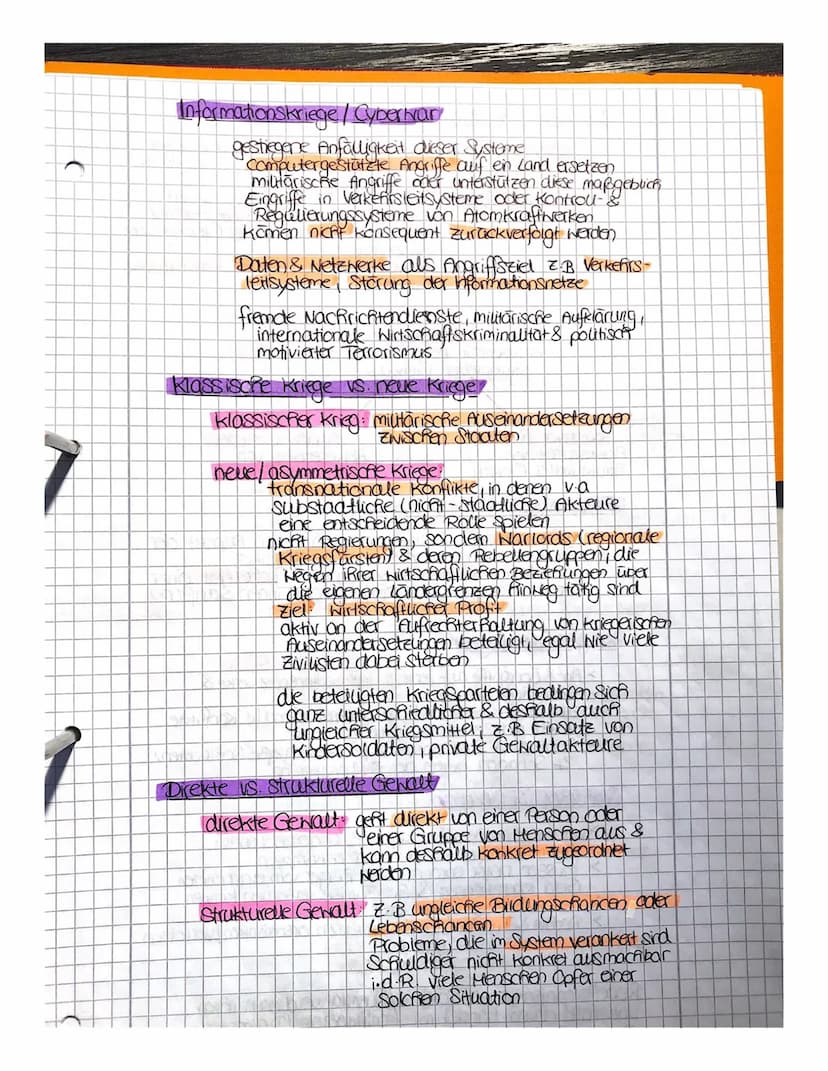 Informationskriege / Cyberwar
gestiegene Anfälligkeit dieser Systeme
computergestützte Angriffe auf ein Land ersetzen
militärische Angriffe oder unterstützen diese maßgeblich
Eingriffe in Verkehrsleitsysteme oder Kontroll- &
Regulierungssysteme von Atomkraftwerken
können nicht konsequent zurückverfolgt werden
Daten & Netzwerke als Angriffsziel z.B Verkehrs-
leitsysteme, Störung der Informationsnetze
fremde Nachrichtendienste, militärische Aufklärung,
internationale Wirtschaftskriminalität & politisch
motivierter Terrorismus
klassische Kriege vs. neue Kriege
klassischer Krieg: militärische Auseinandersetzungen
zwischen Staaten
neue/asymmetrische Kriege:
transnationale Konflikte, in denen v.a
substaatliche (nicht-staatliche) Akteure
eine entscheidende Rolle spielen
nicht Regierungen, sondern Warlords (regionale
Kriegsfürsten) & deren Rebellengruppen, die
wegen ihrer wirtschaftlichen Beziehungen über
die eigenen Ländergrenzen hinweg tätig sind
Ziel: wirtschaftlicher Profit
aktiv an der Aufrechterhaltung von kriegerischen
Auseinandersetzungen beteiligt, egal wie viele
Zivilisten dabei sterben
die beteiligten Kriegsparteien bedingen sich
ganz unterschiedlicher & deshalb auch
ungleicher Kriegsmittel, z.B Einsatz von
Kindersoldaten, private Gewaltakteure
Direkte vs. strukturelle Gewalt
direkte Gewalt: geht direkt von einer Person oder
einer Gruppe von Menschen aus &
kann deshalb konkret zugeordnet
werden
Strukturelle Gewalt: z.B ungleiche Bildungschancen oder
Lebenschancen
Probleme, die im System verankert sind
Schuldiger nicht konkret ausmachbar
i.d.R. viele Menschen Opfer einer
solchen Situation